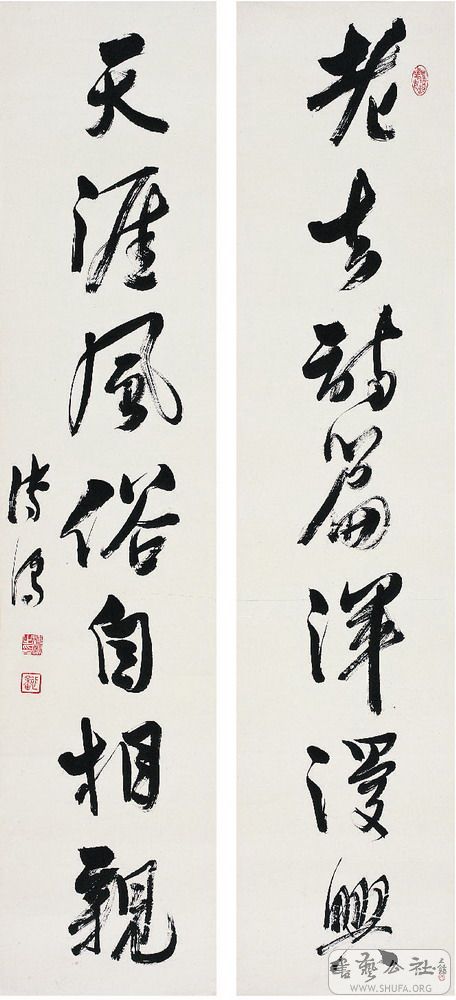 老去詩篇渾漫興
天涯風俗自相親
溥儒
書藝公社
WWW.SHUFA.ORG